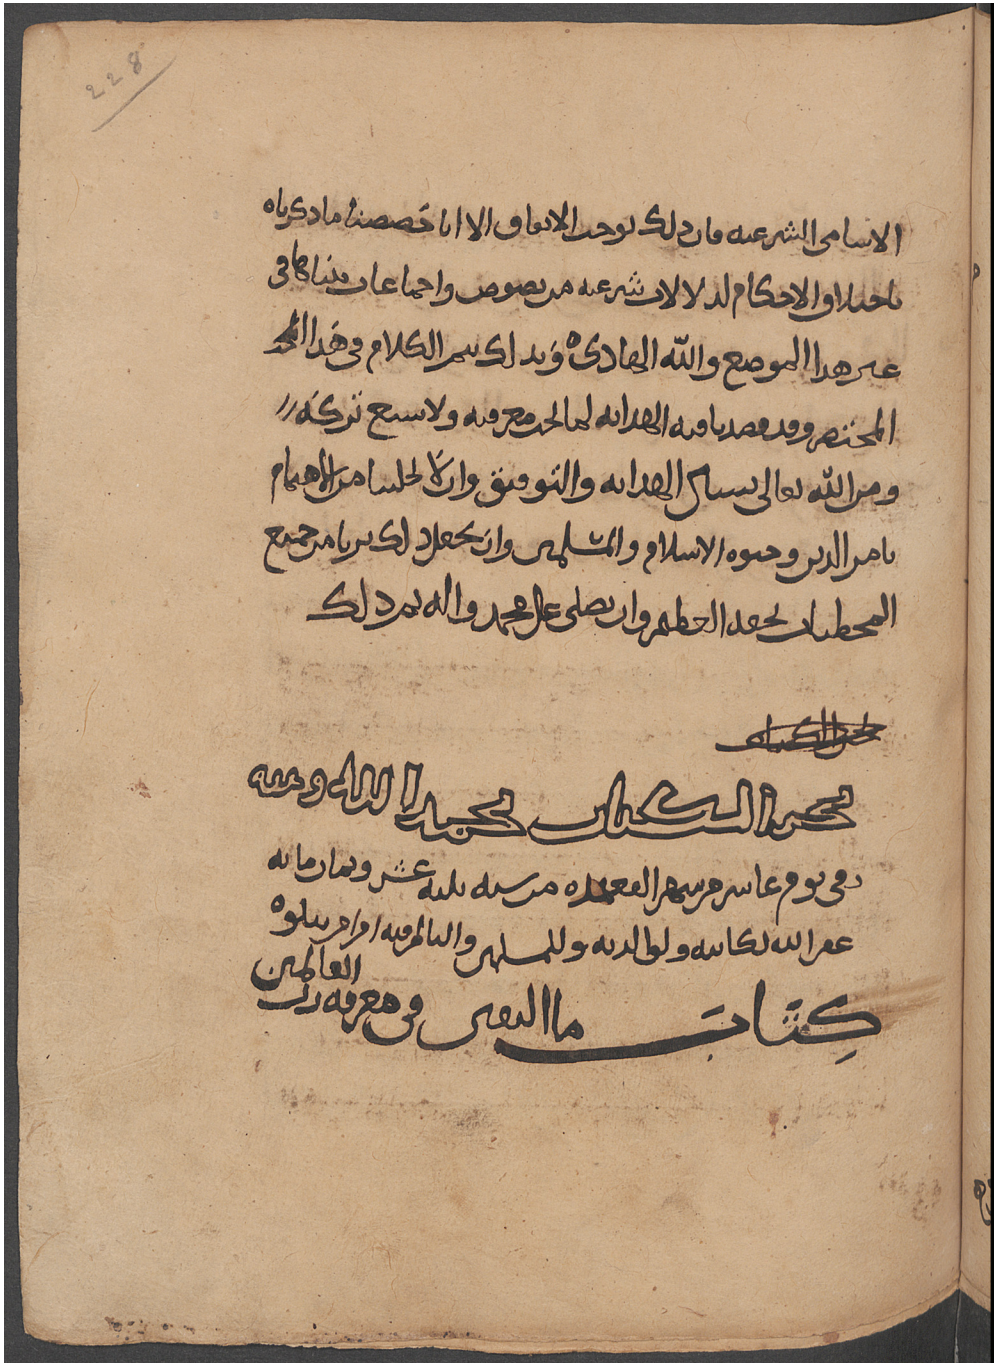 228
الاسامى الشرعيه فان ذلك يوجب الاتفاق الا انا خصصنا ما ذكرناه
باختلاف الاحكام لدلالات شرعيه من نصوص واجماعات بيناها فى
غير هذا الموضع والله الهادى وبذلك يتم الكلام فى هذا
المختصر وقد قصدنا فيه الهدايه لما يجب معرفته ولا يسع تركه
ومن الله تعالى نسال الهدايه والتوفيق وان لا يخلينا من الاهتمام
بامر الدين وحيوه الاسلام والمسلمين وان يجعل ذلك بريا من جميع
المحبطات بحقه العظيم وان يصلى على محمد واله تم ذلك
نجز الكتاب بحمد الله ومنه
فى يوم عاشر من شهر القعده من سنه ثلثه عشر وثمان مائه
غفر الله لكاتبه ولوالديه وللمسلمين والناظر فيه امين يتلوه
كتاب ما اليقين فى معرفه رب
العالمين